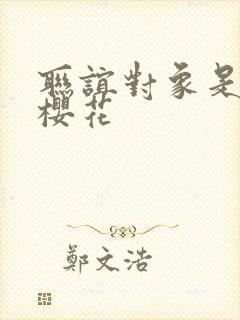 聯誼對象是
櫻花
鄭文浩